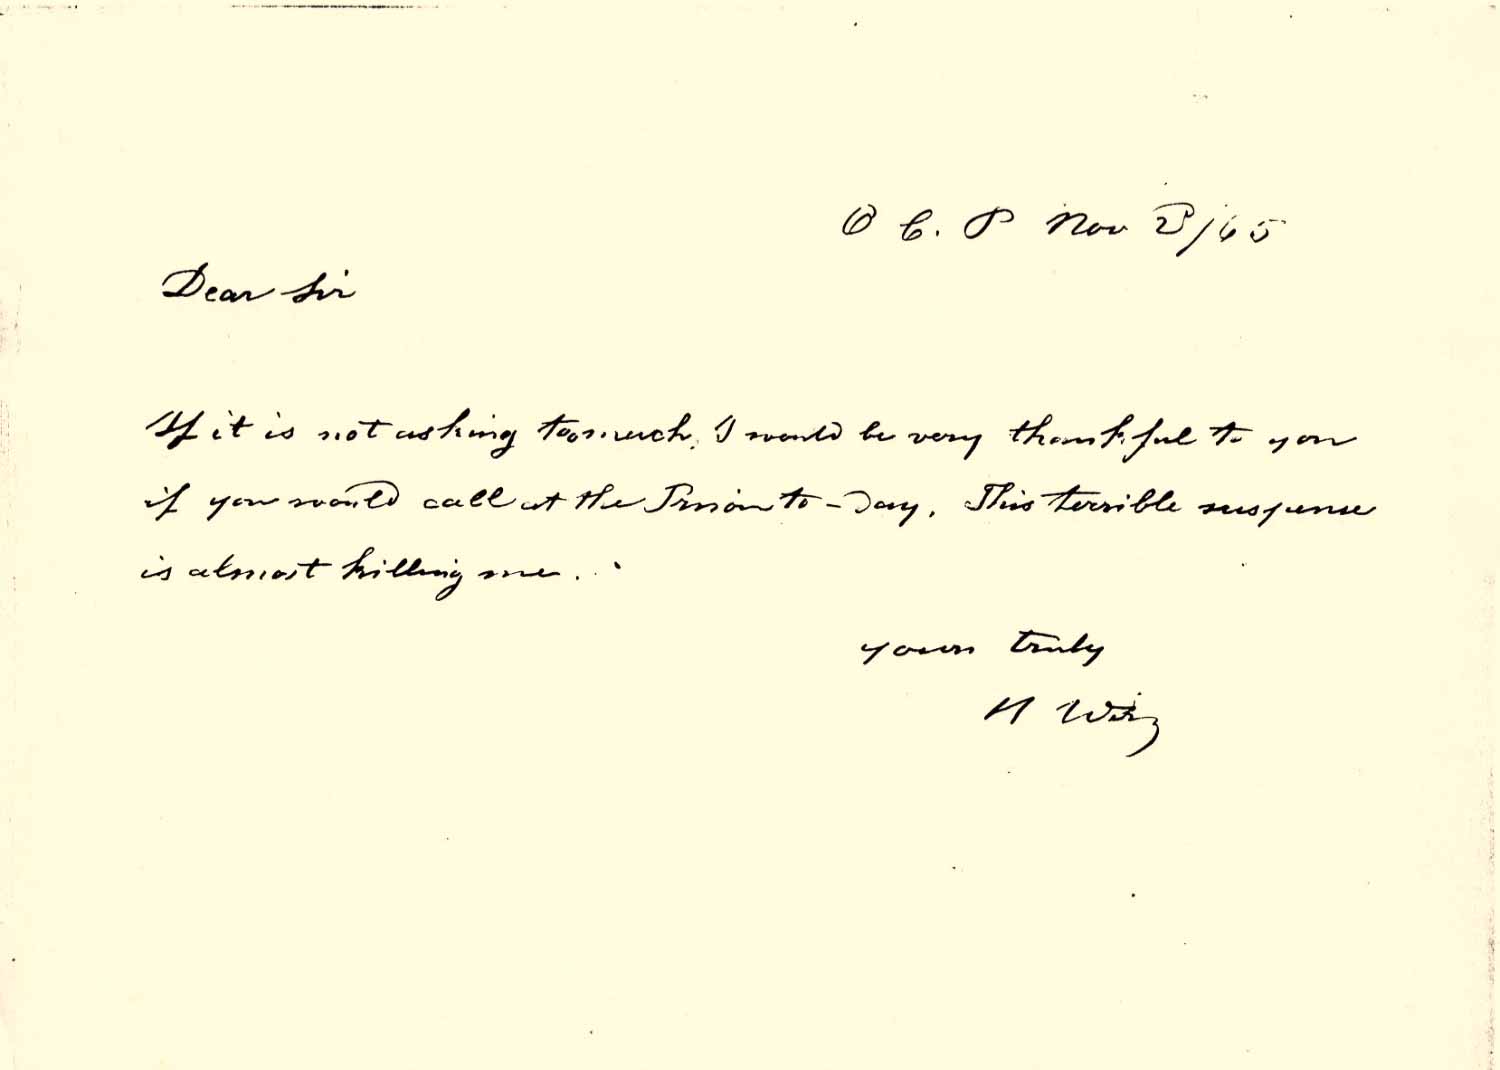 O C. P Nov 3/65
Dear Sir
If it is not asking too much, I would be very thankful to you
if you would call at the Prison to-Day. This terrible suspense
is almost killing me.
yours truly
H Wirz